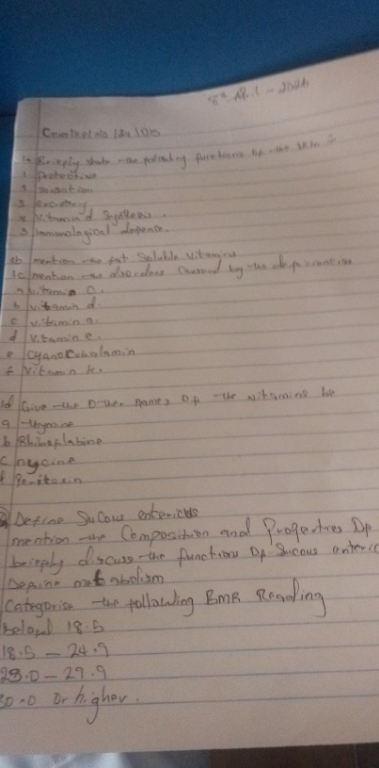 8th April - 2026
1a Briefly state the following functions of the skin :-
1 Protective
2 Sensation
3 excretory
4 Vitamin d Synthesis.
5 Immunological defense.
1b mention the fat Soluble Vitamins
1c mention the disorders Caused by the deficiencies
a vitamin c.
b vitamin d.
c vitamin a.
d Vitamin e.
e Cyanocobalamin
f Vitamin k.
1d Give the Other names Of the vitamins be
a thymine
b Rhiboflabine
c nycine
d
2 Define Sucous entericus
mention the Composition and Properties Of
briefly discuss the functions Of Sucous enteric
Define metabolism
Categorise the following BMR Reading
below 18.5
18.5 - 24.9
25.0 - 29.9
30.0 Or higher.